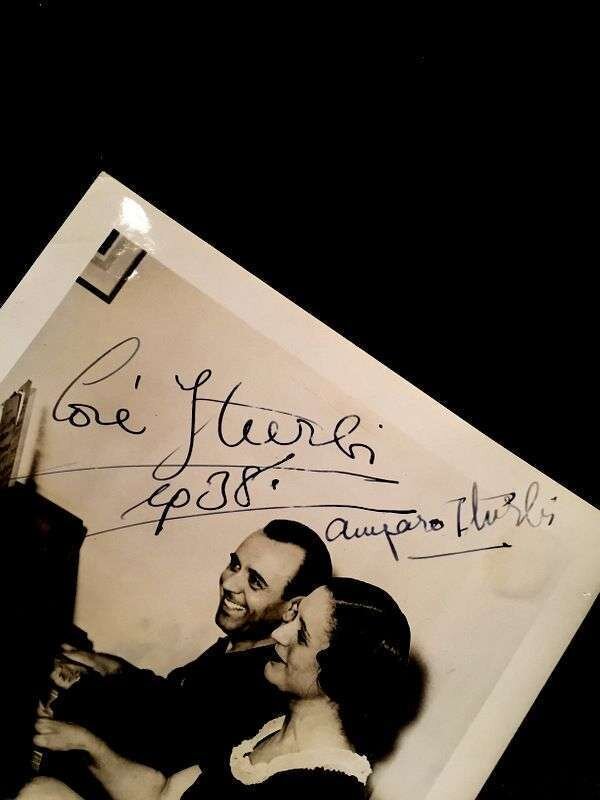 José Iturbi
1938.
Amparo Iturbi